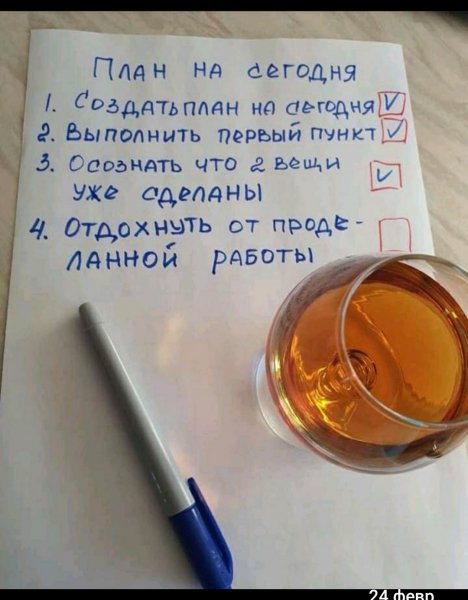 План на сегодня
1. Создать план на сегодня
2. Выполнить первый пункт
3. Осознать что 2 вещи
уже сделаны
4. Отдохнуть от проде-
ланной работы
24 февр